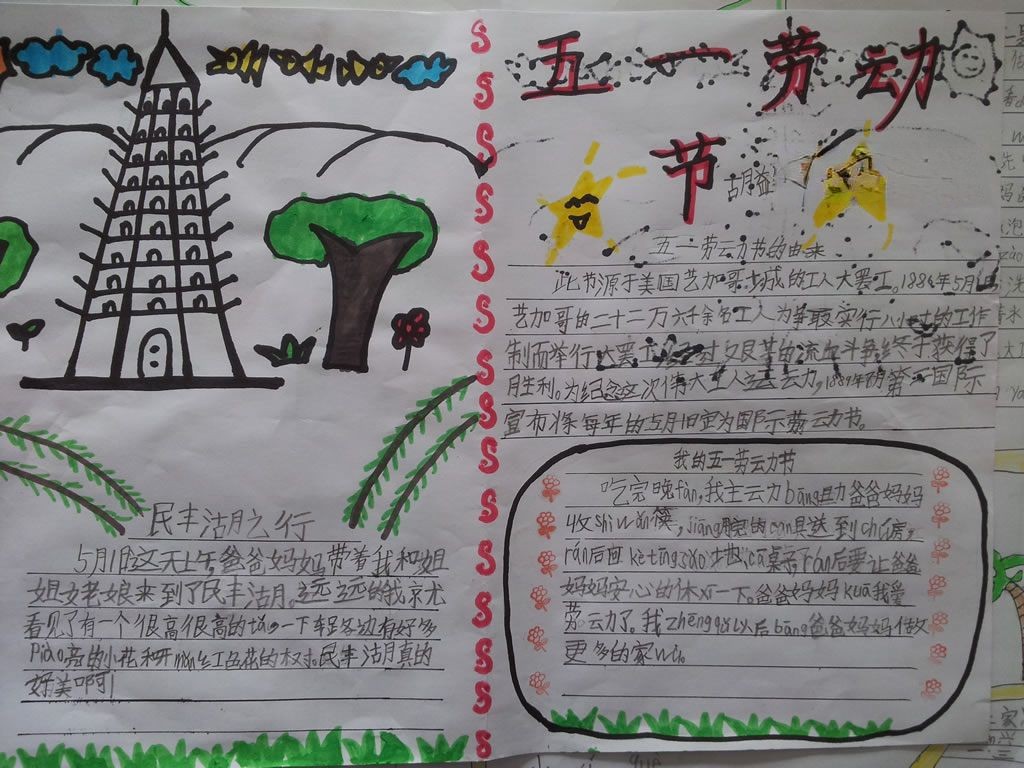 五一劳动
节
五一劳动节的由来
此节源于美国艺加哥城的工人大罢工。1884年5月1日
艺加哥的二十二万六千余名工人为争取实行八小时的工作
制而举行大罢工,艰苦的流血斗争终于获得了
月生利。为纪念这次伟大工人运动,1889年 第二国际
宣布将每年的5月1日定为国际劳动节。
我的五一劳动节
吃完晚fàn,我主云力bāng助爸爸妈妈
收shi wǎn筷,jiāng脏的can具送到chú房,
rán后回kè tīng sǎo地,cā桌子。rán后要让爸爸
妈妈安心的休xi一下。爸爸妈妈kuā我爱
劳云力了。我zhēng qǔ以后bāng爸爸妈妈做
更多的家wù。
民丰沽月之行
5月1日这天上午,爸爸妈妈带着我和姐
姐 老娘来到了民丰沽月。远远的我京尤
看见了有一个很高很高的tǎ。一下车足各边有好多
piào亮的小花和开mǎn红色花的木对。民丰沽月真的
好美啊!